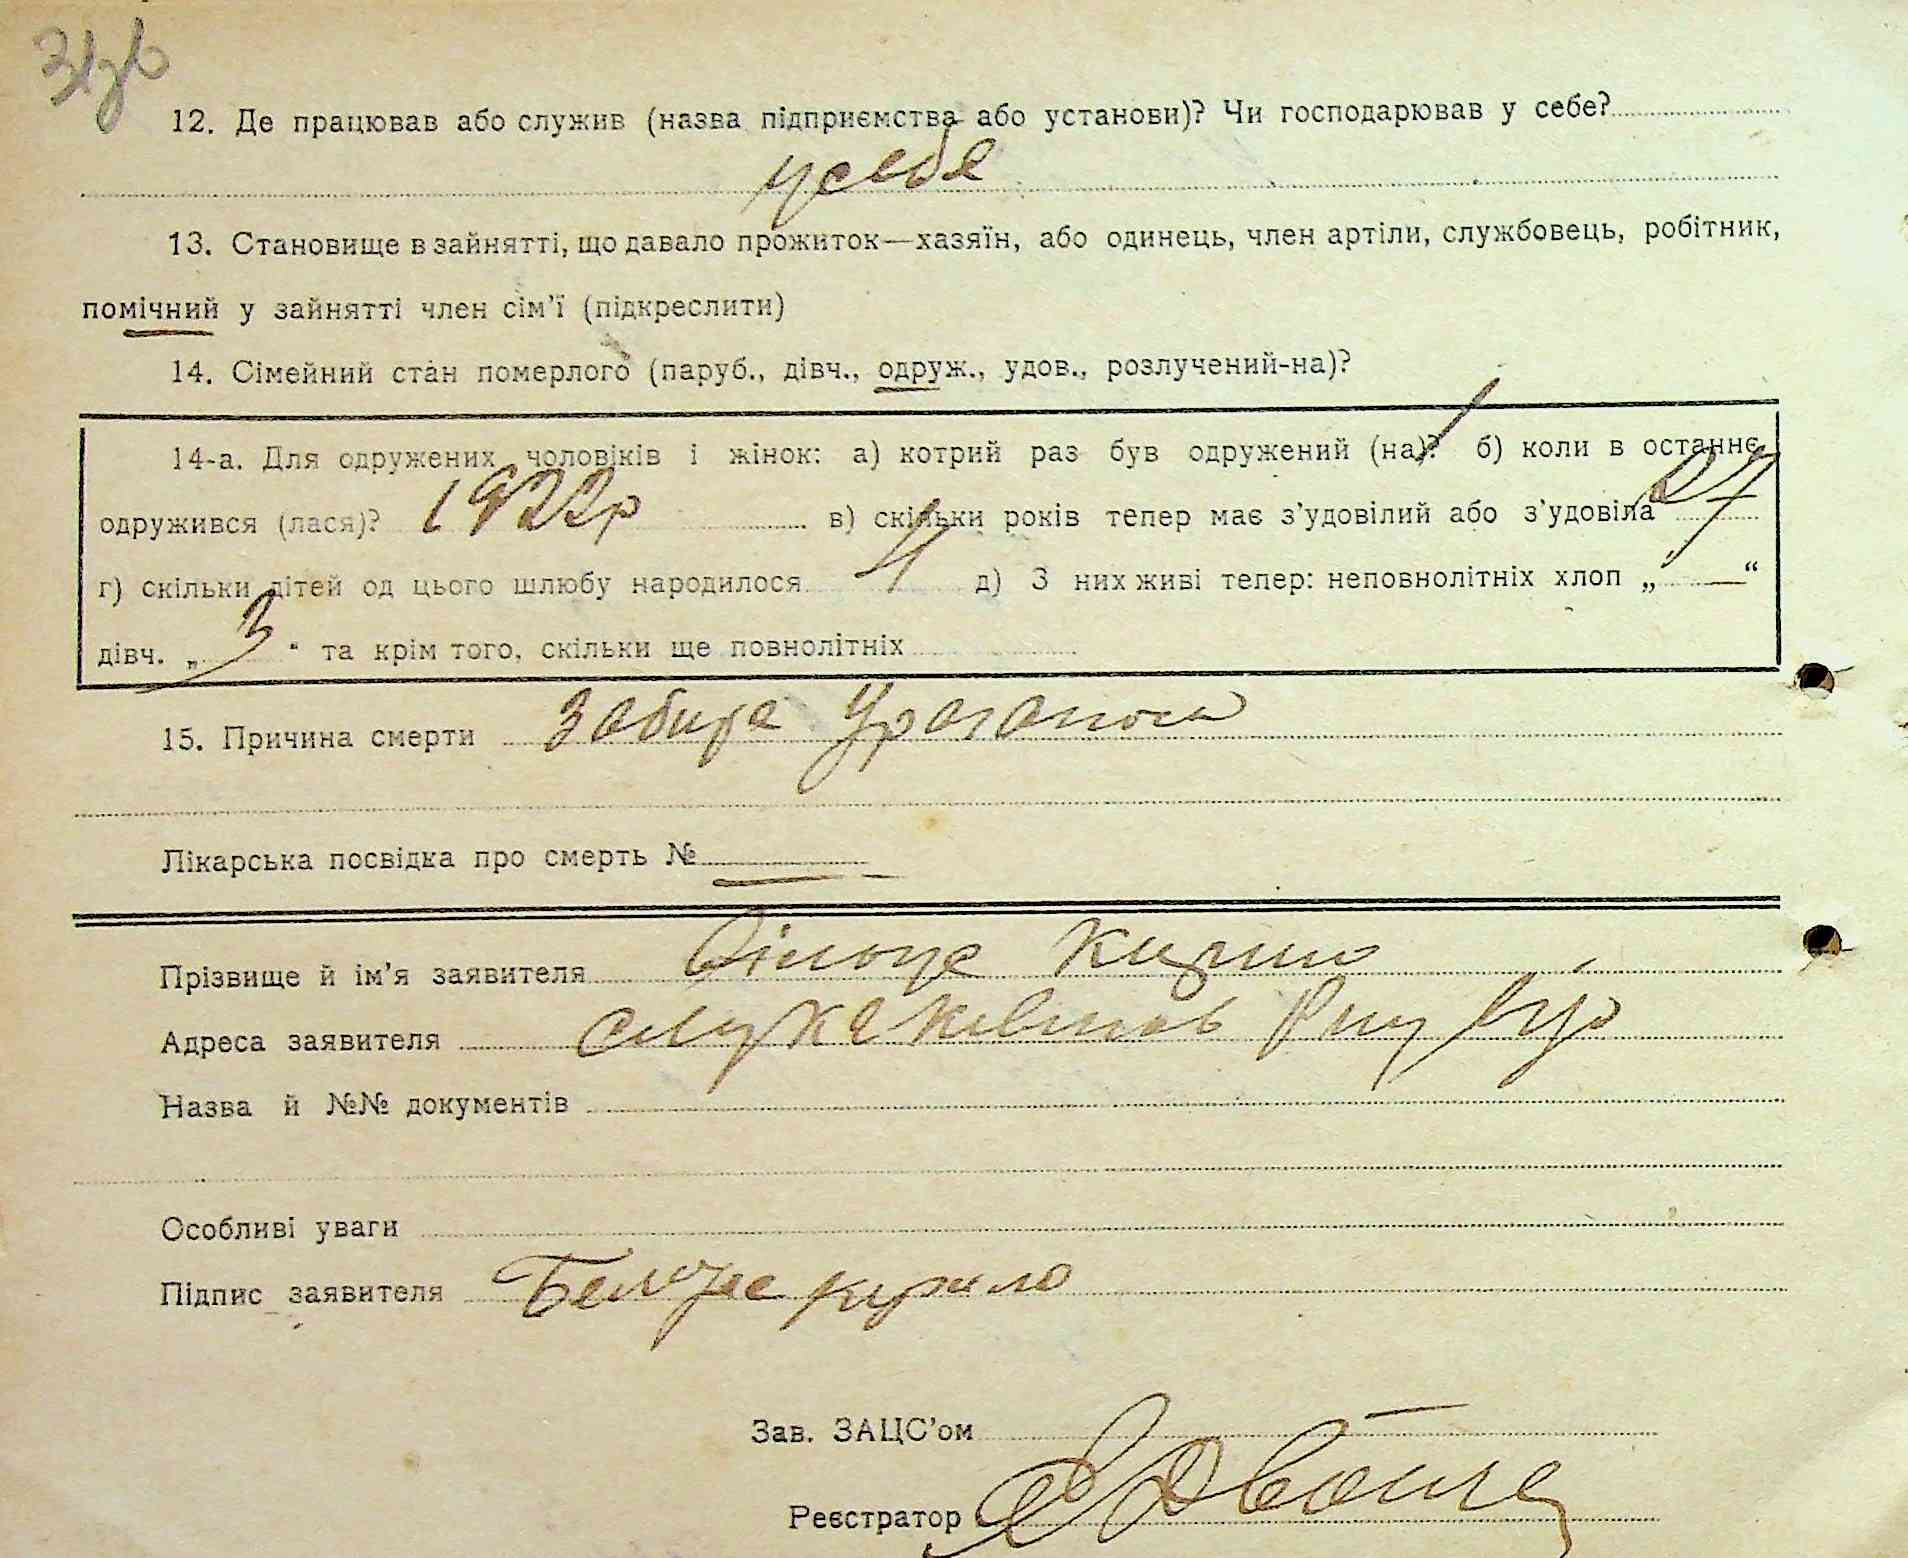 12. Де працював або служив (назва підприємства або установи)? Чи господарював у себе?
у себе
13. Становище в зайнятті, що давало прожиток—хазяїн, або одинець, член артіли, службовець, робітник,
помічний у зайнятті член сім'ї (підкреслити)
14. Сімейний стан померлого (паруб., дівч., одруж., удов., розлучений-на)?
14-а. Для одружених чоловіків і жінок: а) котрий раз був одружений (на)? 1 б) коли в останнє
одружився (лася)? 1922р в) скільки років тепер має з'удовілий або з'удовіла 27
г) скільки дітей од цього шлюбу народилося 4 д) З них живі тепер: неповнолітніх хлоп „ — “
дівч. „ 3 “ та крім того, скільки ще повнолітніх
15. Причина смерти Забита
Лікарська посвідка про смерть № —
Прізвище й ім'я заявителя
Адреса заявителя
Назва й №№ документів
Особливі уваги
Підпис заявителя Кирило
Зав. ЗАЦС'ом —
Реєстратор